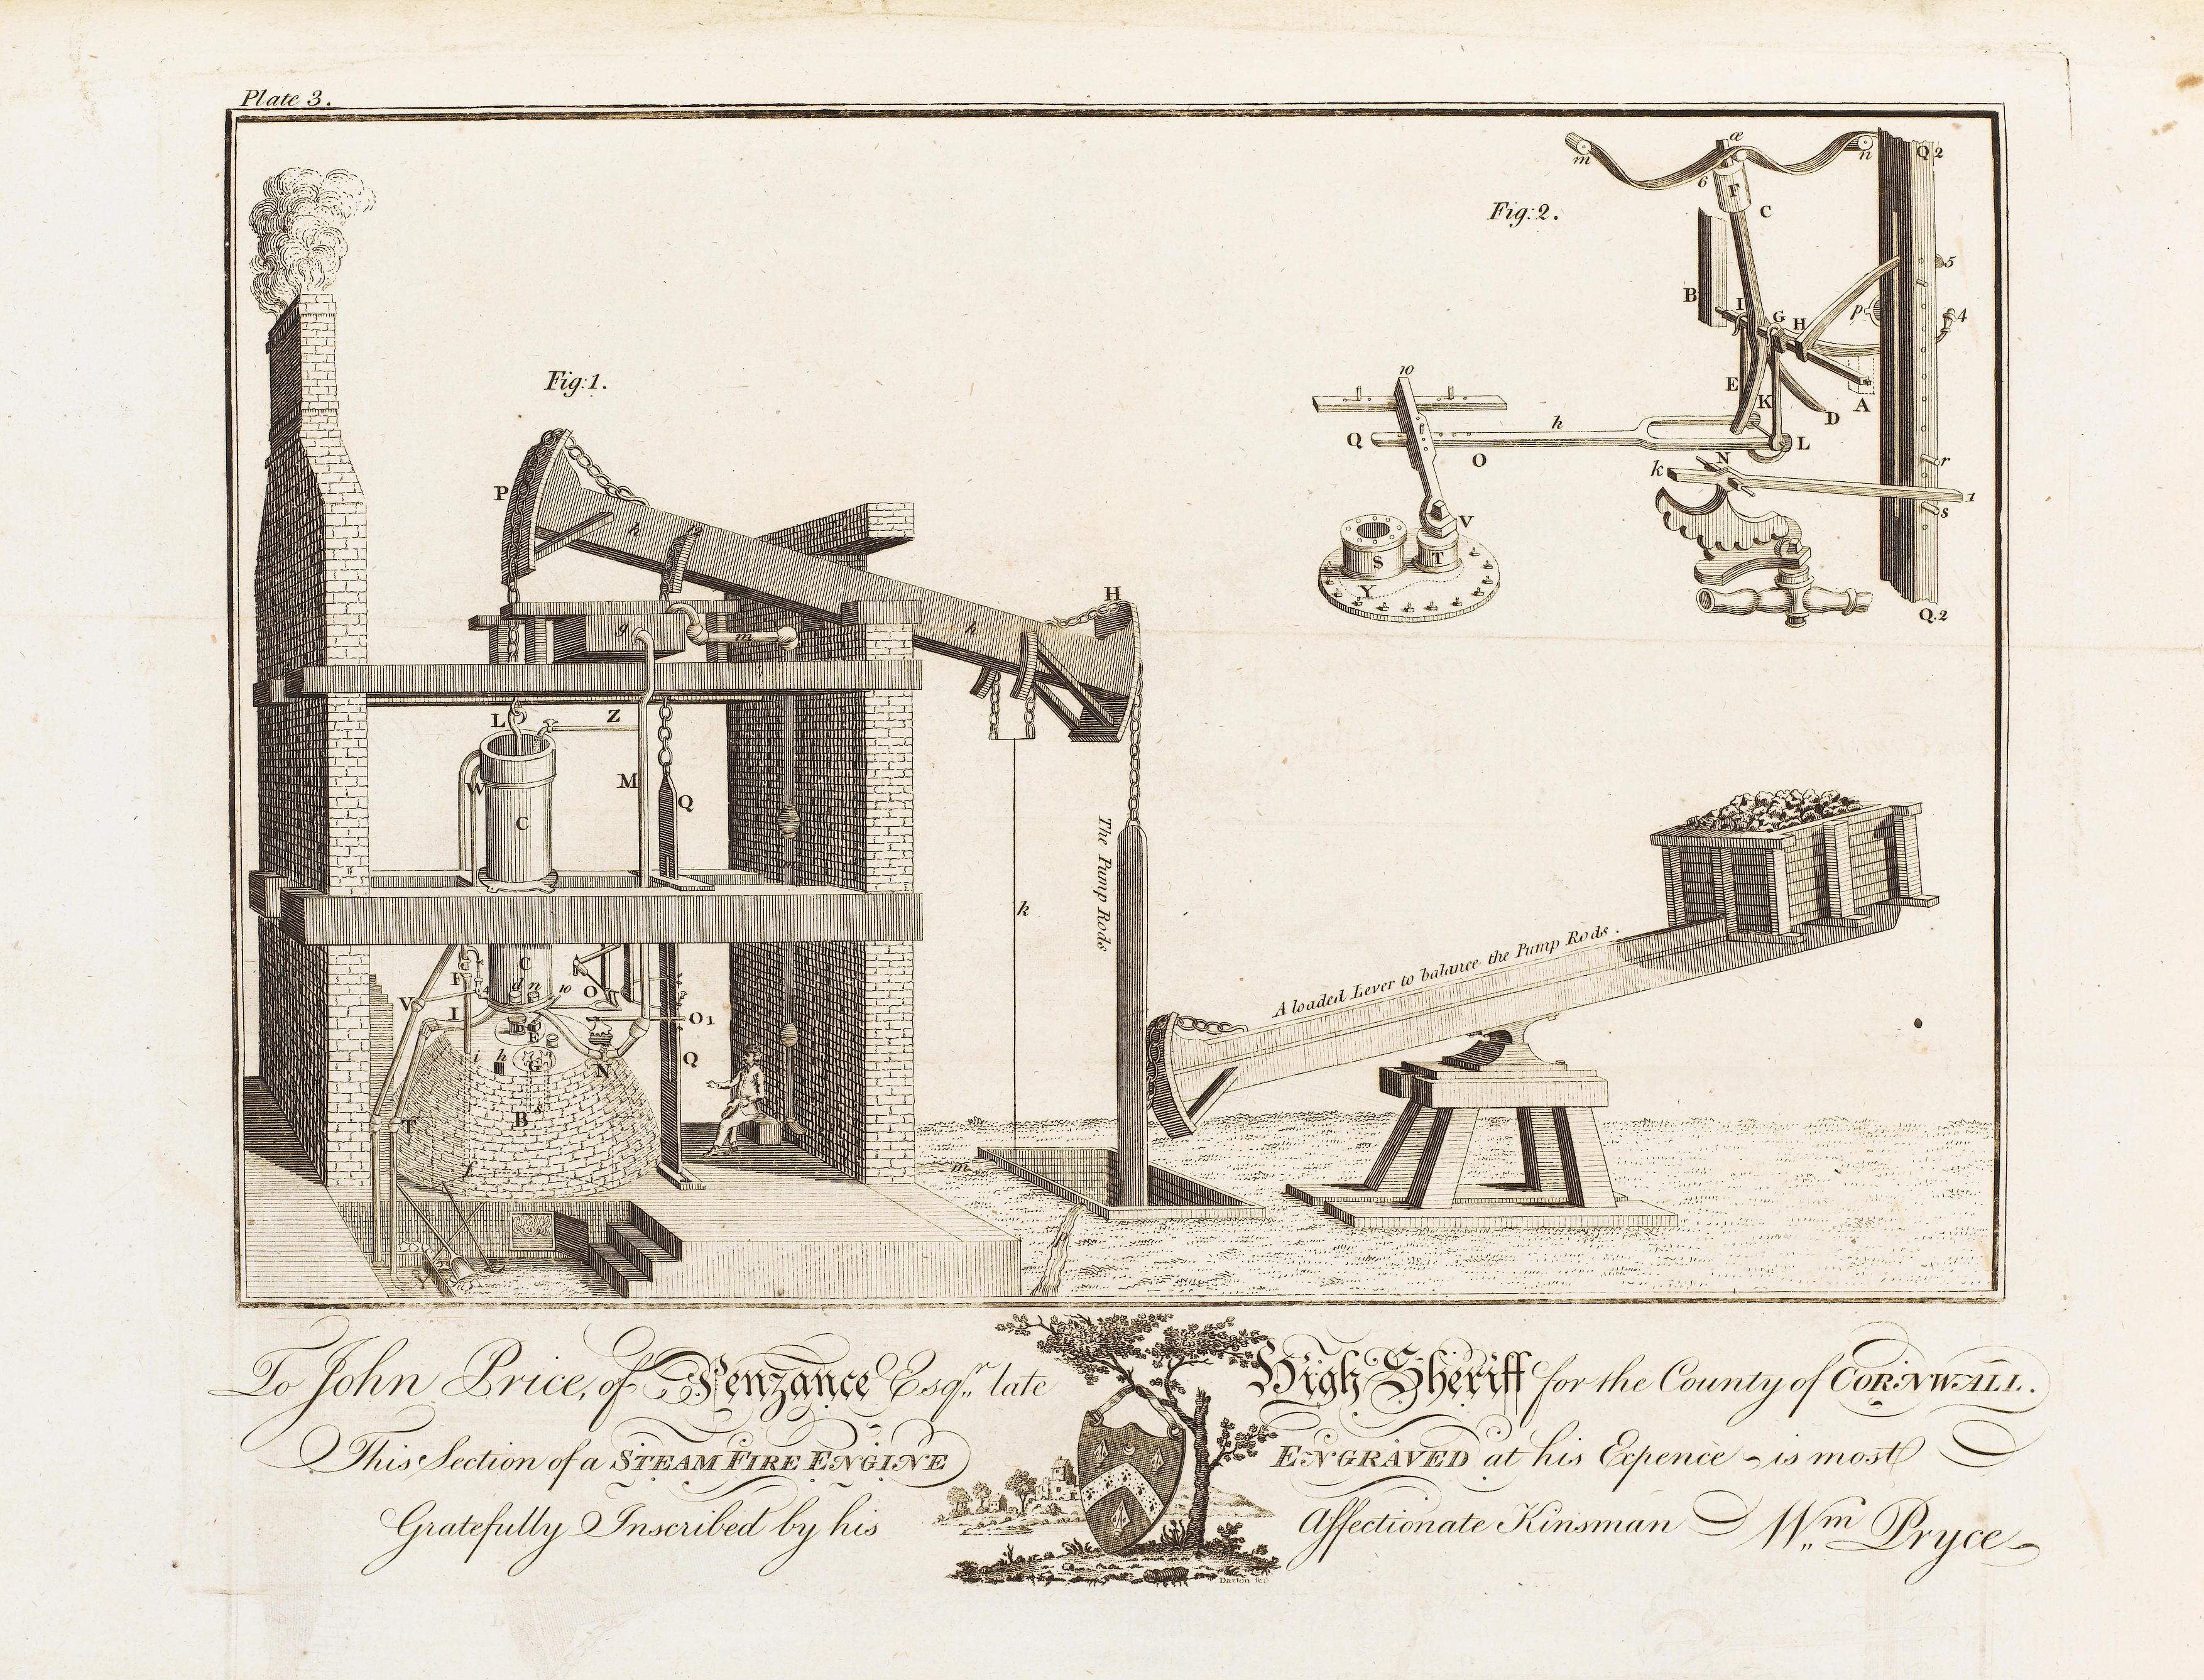 Plate 3.
Fig: 1.
Fig: 2.
æ
m
n
Q 2
6
F
C
5
B
I
G
H
p
4
10
E
K
A
D
h
Q
L
O
N
k
r
1
s
V
S
T
Y
Q.2
P
h
H
g
m
h
L
Z
W
M
Q
C
k
The Pump Rods
A loaded Lever to balance the Pump Rods.
C
F
d n
10
O
V
I
O 1
E
i
h
G
N
Q
B
T
f
m
P
Y
To John Price, of Penzance Esqr. late High Sheriff for the County of CORNWALL.
This Section of a STEAM FIRE ENGINE ENGRAVED at his Expence is most
Gratefully Inscribed by his Affectionate Kinsman Wm Pryce